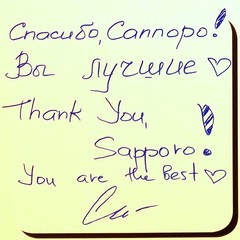 Спасибо, Саппоро!
Вы лучшие ♡
Thank You,
Sapporo!
You are the Best ♡